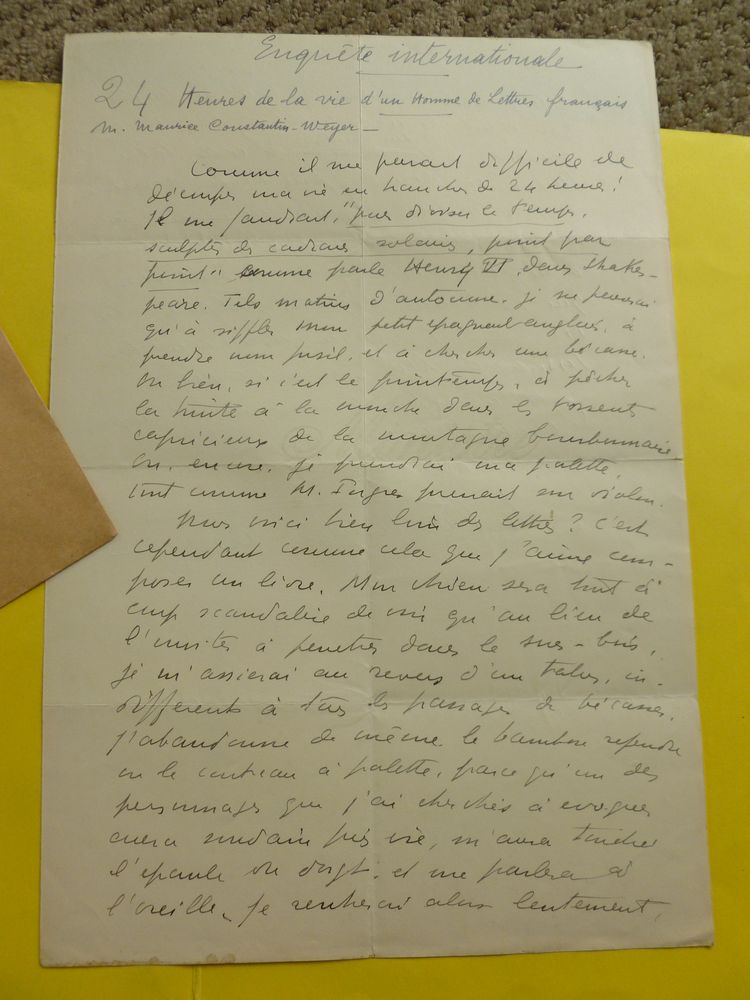 Enquête internationale
24 Heures de la vie d'un Homme de Lettres français
M. Maurice Constantin-Weyer -
Comme il me parait difficile de
découper ma vie en tranches de 24 heures!
Il me faudrait, "pour diviser le temps,
sculpter des cadrans solaires, point par
point" comme parle Henry VI, dans Shakes-
peare. Tels matins d'automne, je ne penserai
qu'à siffler mon petit épagneul anglais, à
prendre mon fusil, et à chercher une bécasse.
Ou bien, si c'est le printemps, à pêcher
la truite à la mouche dans les torrents
capricieux de la montagne bourbonnaise
ou, encore, je prendrai ma palette,
tout comme M. Ingres prenait son violon.
Nous voici bien loin des lettres? C'est
cependant comme cela que j'aime com-
poser un livre. Mon chien sera tout à
coup scandalisé de voir qu'au lieu de
l'inviter à pénétrer dans le sous-bois,
je m'assierai au revers d'un talus, in-
différents à tous les passages de bécasses.
J'abandonne de même le bambou refendu
ou le couteau à palette, parce qu'un des
personnages que j'ai cherchés à évoquer
aura soudain pris vie, m'aura touché
l'épaule du doigt, et me parlera à
l'oreille. Je rentrerai alors lentement,